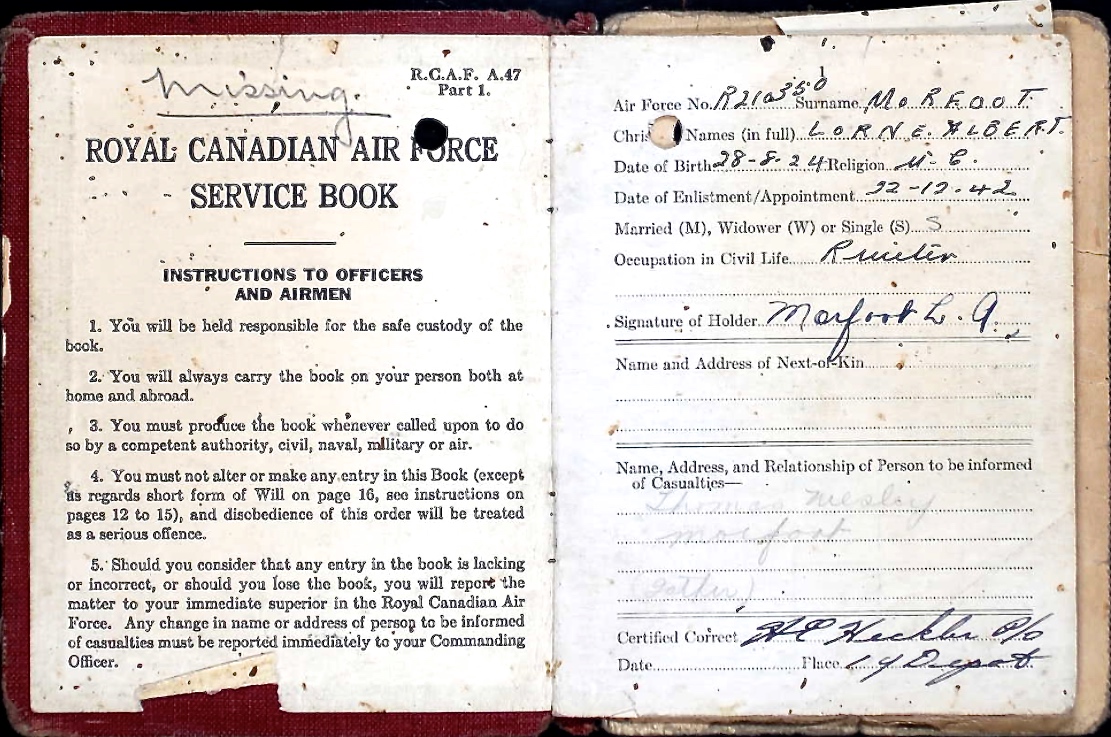 Missing.
R.C.A.F. A.47
Part 1.
ROYAL CANADIAN AIR FORCE
SERVICE BOOK
INSTRUCTIONS TO OFFICERS
AND AIRMEN
1. You will be held responsible for the safe custody of the
book.
2. You will always carry the book on your person both at
home and abroad.
3. You must produce the book whenever called upon to do
so by a competent authority, civil, naval, military or air.
4. You must not alter or make any entry in this Book (except
as regards short form of Will on page 16, see instructions on
pages 12 to 15), and disobedience of this order will be treated
as a serious offence.
5. Should you consider that any entry in the book is lacking
or incorrect, or should you lose the book, you will report the
matter to your immediate superior in the Royal Canadian Air
Force. Any change in name or address of person to be informed
of casualties must be reported immediately to your Commanding
Officer.
1
Air Force No. R210350 Surname MORFOOT
Chris Names (in full) LORNE. ALBERT.
Date of Birth 28-8-24 Religion U.C.
Date of Enlistment/Appointment 22-12-42
Married (M), Widower (W) or Single (S) S
Occupation in Civil Life
Signature of Holder Morfoot L. A.
Name and Address of Next-of-Kin
Name, Address, and Relationship of Person to be informed
of Casualties—
Thomas Wesley
Morfoot
(father)
Certified Correct
Date Place Depot